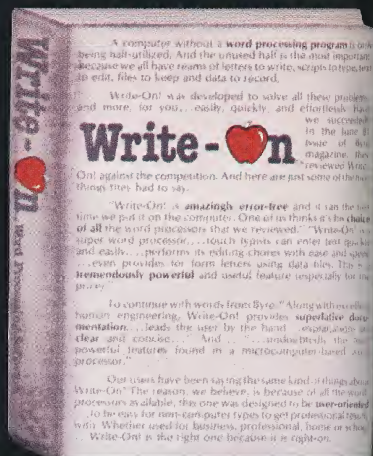 A computer without a word processing program is only
being half-utilized. And the unused half is the most important
because we all have reams of letters to write, scripts to type, text
to edit, files to keep and data to record.
Write-On! was developed to solve all these problems
and more, for you...easily, quickly, and effortlessly.
we succeeded
In the June 81
issue of Byte
magazine, they
reviewed Write-
Write-On
On! against the competition. And here are just some of the nice
things they had to say.
"Write-On! is amazingly error-free and it ran the first
time we put it on the computer. One of us thinks it's the choice
of all the word processors that we reviewed." "Write-On! is a
super word processor....touch typists can enter text quickly
and easily....performs its editing chores with ease and speed
...even provides for form letters using data files. This is a
tremendously powerful and useful feature (especially for the
price)."
To continue with words from Byte. "Along with excellent
human engineering, Write-On! provides superlative docu-
mentation....leads the user by the hand...explanations are
clear and concise...." And..."...undoubtedly the most
powerful features found in a microcomputer-based word
processor."
Our users have been saying the same kind of things about
Write-On! The reason, we believe, is because of all the word
processors available, this one was designed to be user-oriented
...to be easy for non-computer types to get professional results
with. Whether used for business, professional, home or school
Write-On! is the right one because it is right-on.
Write-On
Word Processing